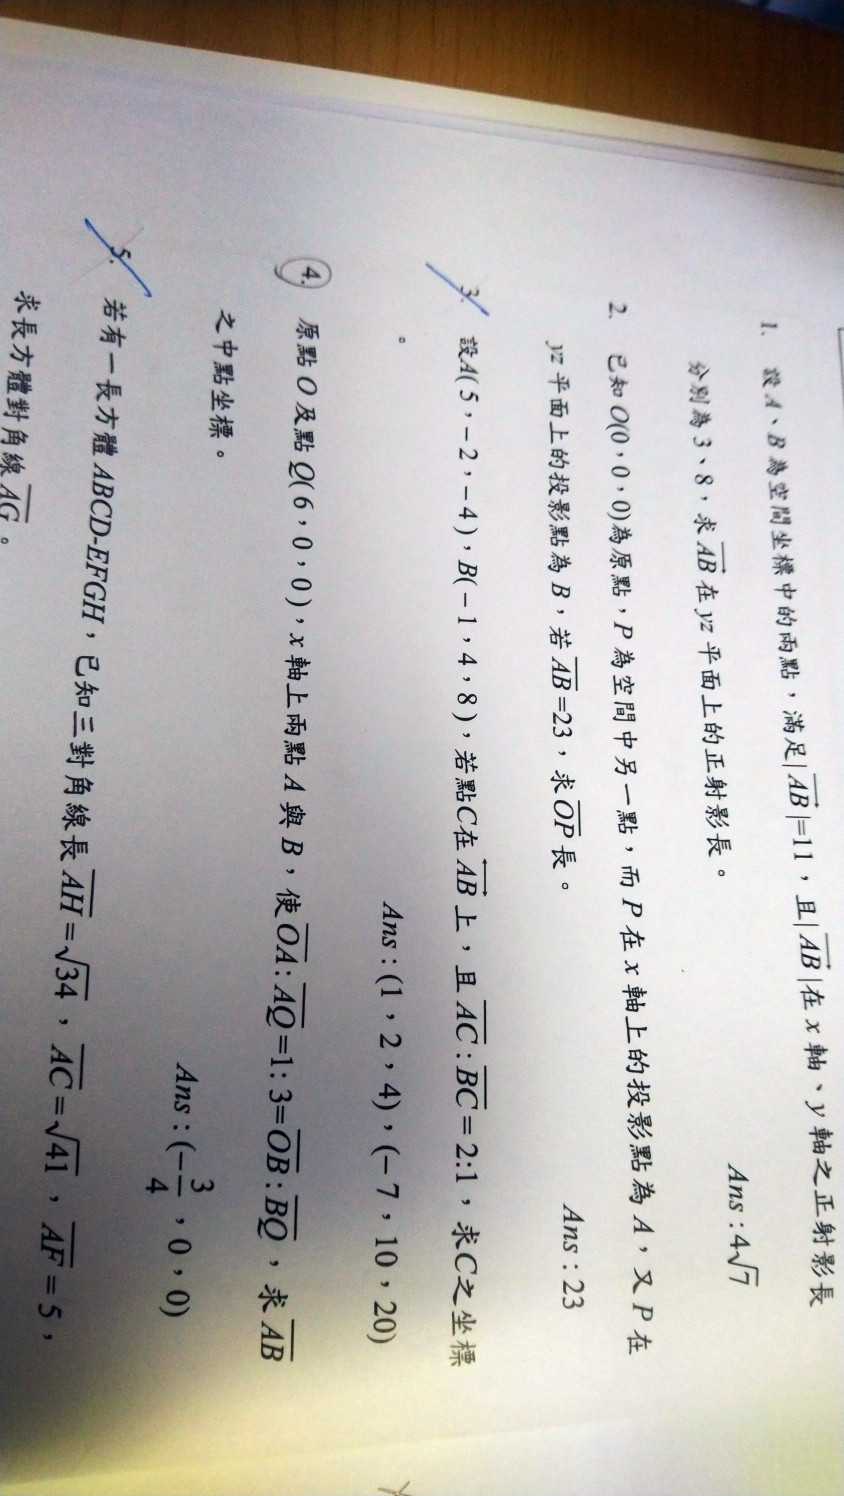 1. 設A、B為空間坐標中的兩點，滿足|AB|=11，且|AB|在x軸、y軸之正射影長
分別為3、8，求AB在yz平面上的正射影長。
Ans：4√7
2. 已知O(0，0，0)為原點，P為空間中另一點，而P在x軸上的投影點為A，又P在
yz平面上的投影點為B，若AB=23，求OP長。
Ans：23
3. 設A(5，-2，-4)，B(-1，4，8)，若點C在AB上，且AC：BC=2:1，求C之坐標
。
Ans：(1，2，4)，(-7，10，20)
4. 原點O及點Q(6，0，0)，x軸上兩點A與B，使OA：AQ=1：3=OB：BQ，求AB
之中點坐標。
Ans：(-3/4，0，0)
5. 若有一長方體ABCD-EFGH，已知三對角線長AH=√34，AC=√41，AF=5，
求長方體對角線AG。